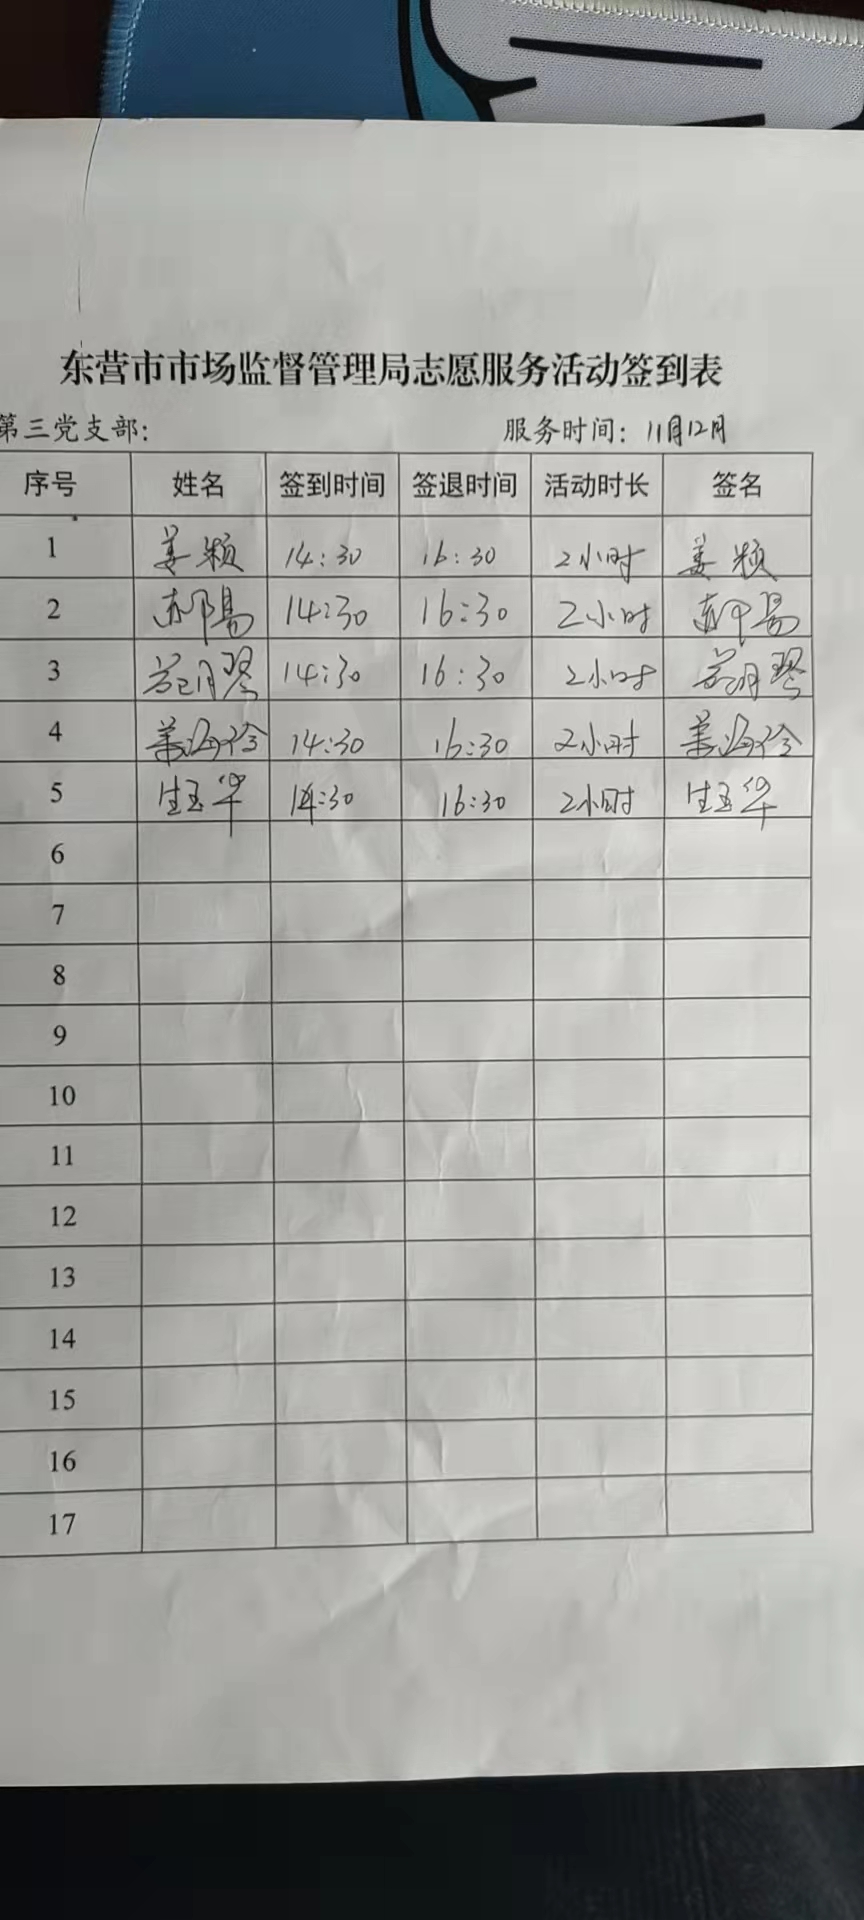 东营市市场监督管理局志愿服务活动签到表
第三党支部: 服务时间: 11月12月
序号 姓名 签到时间 签退时间 活动时长 签名
1 姜颖 14:30 16:30 2小时 姜颖
2 14:30 16:30 2小时
3 14:30 16:30 2小时
4 14:30 16:30 2小时
5 生玉华 14:30 16:30 2小时 生玉华
6
7
8
9
10
11
12
13
14
15
16
17